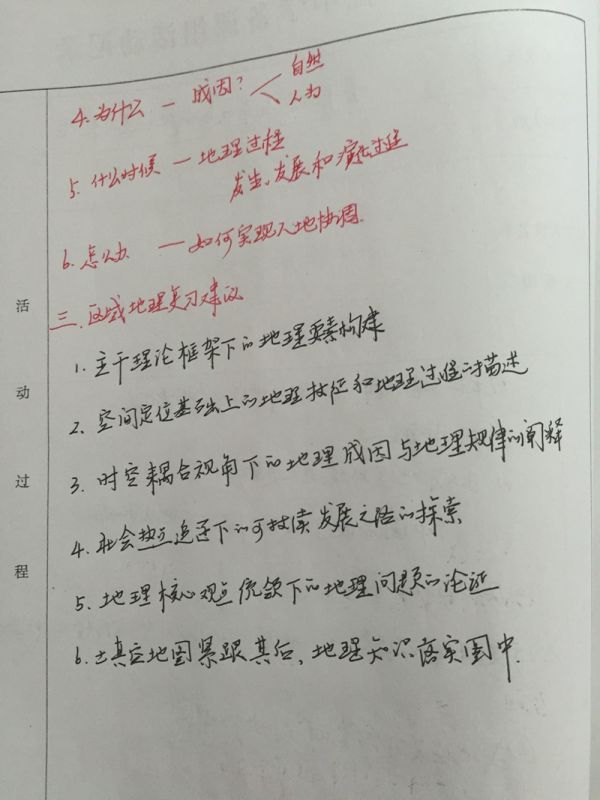 4.为什么 — 成因？ 自然
人为
5.什么时候 — 地理过程
发生、发展和演化过程
6.怎么办 — 如何实现人地协调.
三.区域地理复习建议
1.主干理论框架下的地理要素构建
2.空间定位基础上的地理特征和地理过程的描述
3.时空耦合视角下的地理成因与地理规律的阐释
4.社会热点追逐下的可持续发展之路的探索
5.地理核心观点统领下的地理问题的论证
6.填充地图紧跟其后，地理知识落实图中.
活动过程